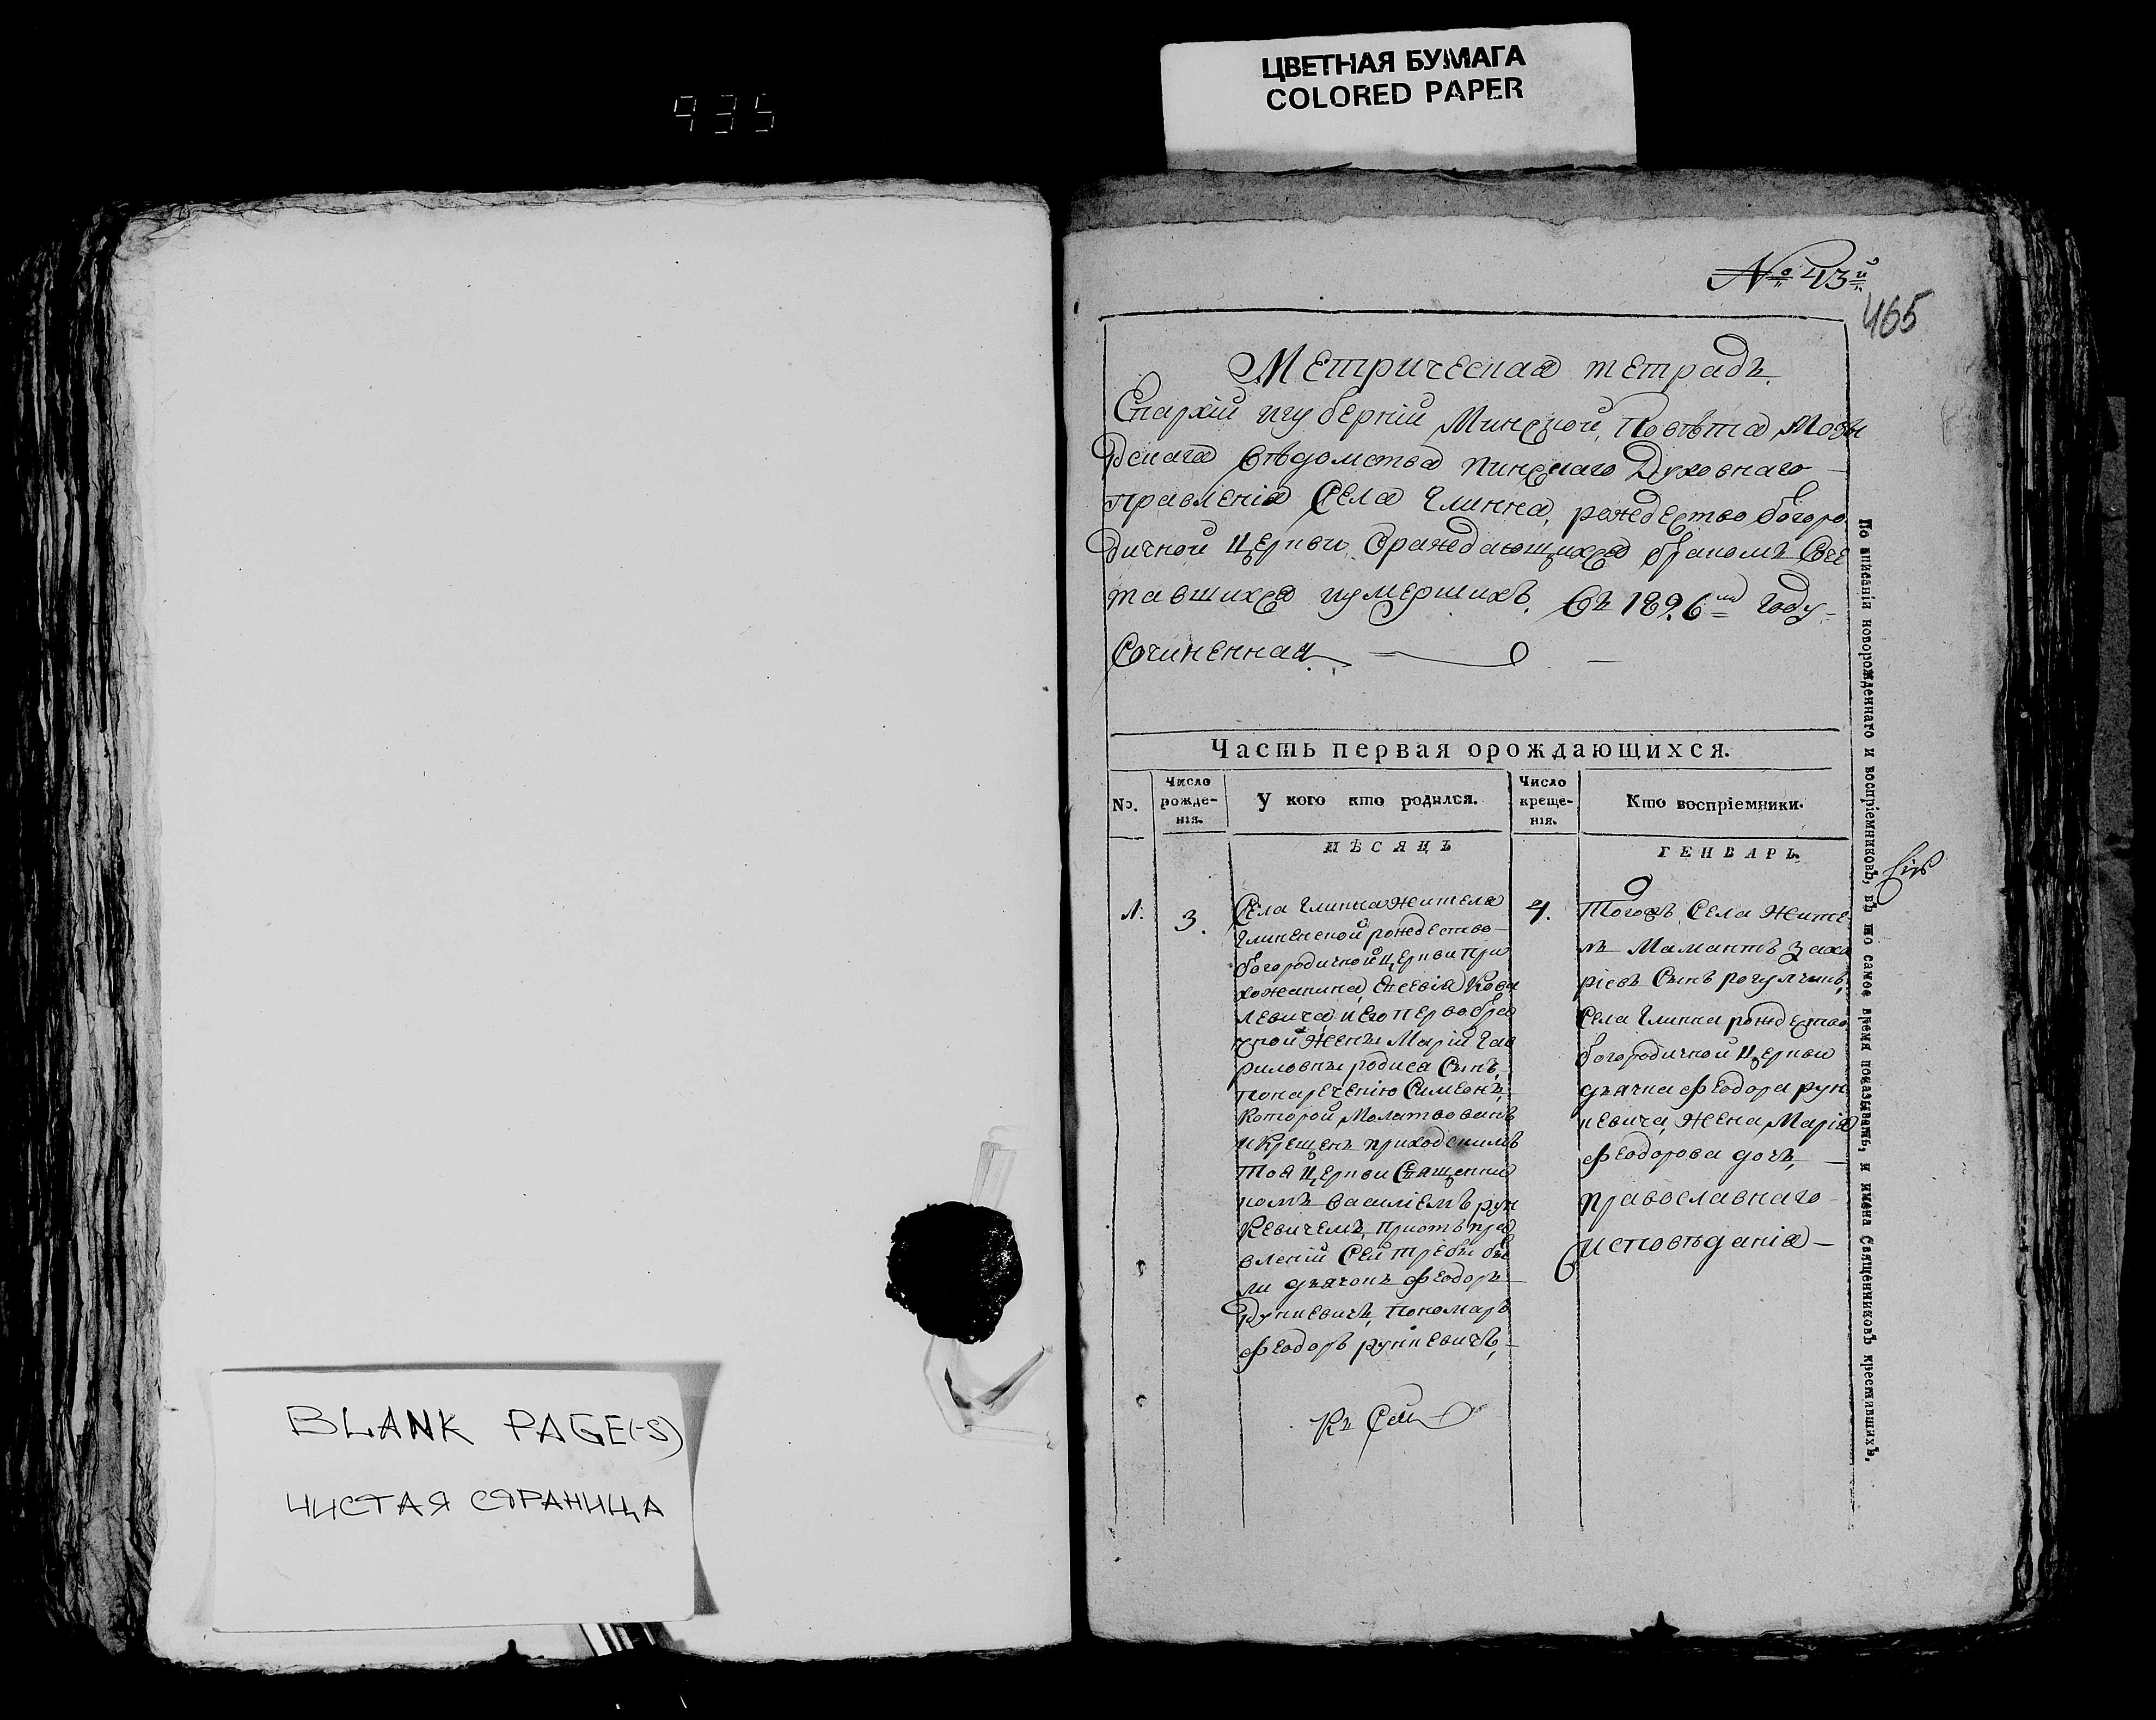 935
ЦВЕТНАЯ БУМАГА
COLORED PAPER
№ 43й
465
Метрическая тетрадь
Епархіи игуберніи Минской, Повѣта Мозы
рскаго вѣдомства пинскаго Духовнаго
правленія Села Глинна, рождество богоро
дичной церкви, Ораждающихся бракомъ Соче
тавшихся иумершихъ. Въ 1826 году
Сочиненная
Часть первая орождающихся.
No.
Число рожде- нія.
У кого кто родился.
Число креще- нія.
Кто воспріемники.
МѢСЯЦЪ
ГЕНВАРЬ.
1.
3.
Села Глинна жителя
Глиненской рождество
богородичной церкви при
хожанина, Кова
левича, иего первобра
чной жены Маріи Гав
риловны родися Сынъ,
понареченію Симеонъ,
которой Молитвованъ
икрещенъ приходскимъ
тоя церкви Священни
комъ василіемъ рун
кевичемъ, приотъпра
вленіи Сей требы бы
ли дьячокъ Феодоръ
Рункевичъ, пономарь
Феодоръ рункевичъ,
Къ Сей
4.
Тогожъ Села жите
ль Мамантъ заха
ріевъ Сынъ
Села Глинна рождество
богородичной церкви
дьячка Феодора рун
кевича, жена, Марія
Феодорова дочь,
православнаго
исповѣданія
По вписаніи новорожденнаго и воспріемниковъ, въ то самое время показывать, и имена Священниковъ крестившихъ.
BLANK PAGE(-S)
ЧИСТАЯ СТРАНИЦА